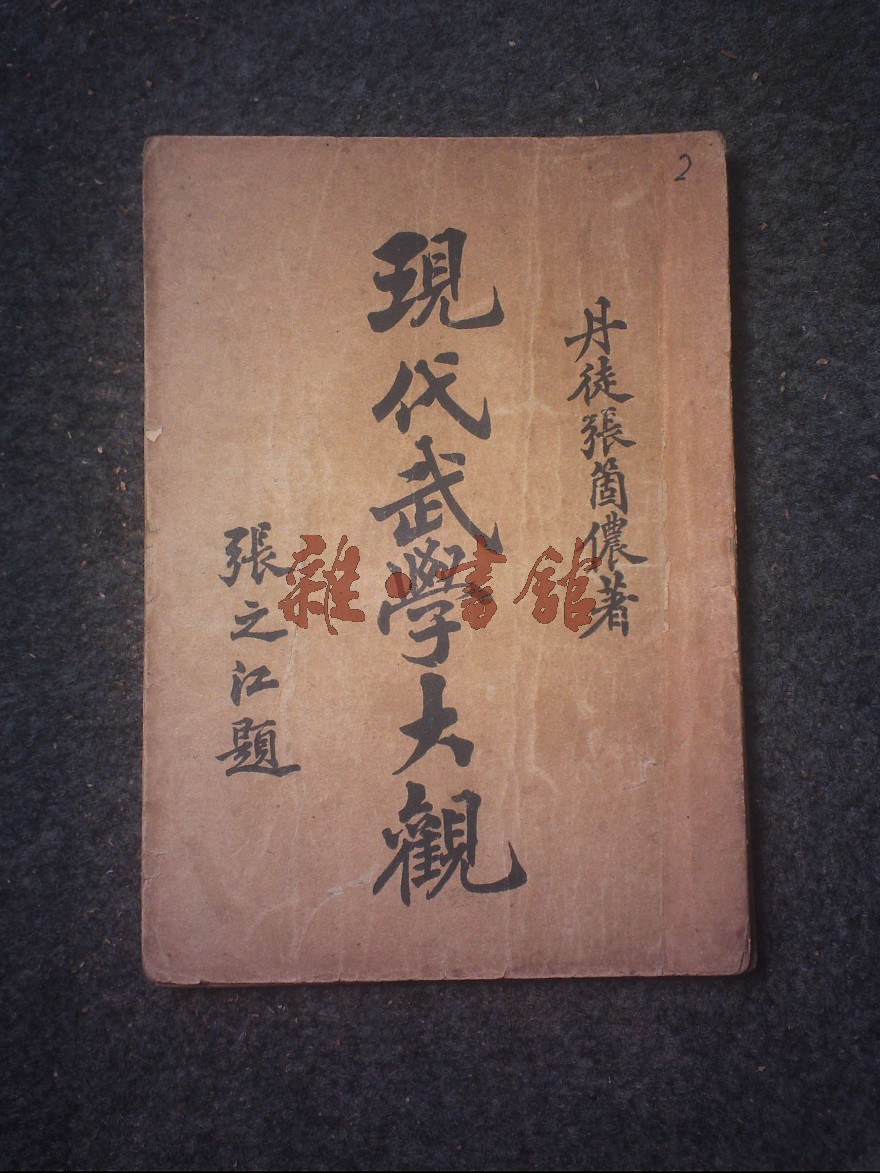 2
丹徒張箇儂著
現代武學大觀
張之江題
雜·書館